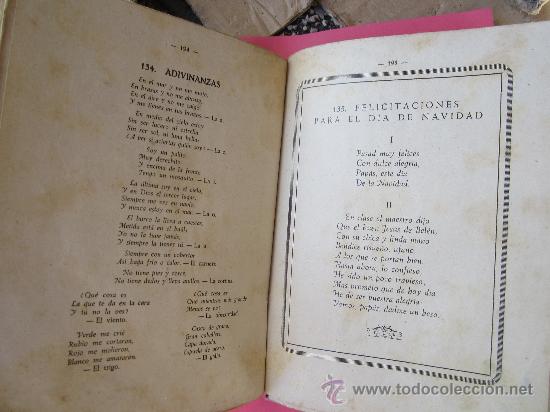 — 194 —
134. ADIVINANZAS
En el mar y no me mojo,
En brasas y no me abraso,
En el aire y no me caigo
Y me tienes en tus brazos. — La a.
En medio del cielo estoy
Sin ser lucero ni estrella,
Sin ser sol, ni luna bella.
¿A que si aciertas quién soy? — La e.
Soy un palito
Muy derechito
Y encima de la frente
Tengo un mosquito. — La i.
La última soy en el cielo,
Y en Dios el tercer lugar,
Siempre me ves en navío
Y nunca estoy en el mar. — La o.
El burro la lleva a cuestas,
Metida está en el baúl,
Yo no la tuve jamás
Y siempre la tienes tú — La u.
Siempre con su cobertor
Así haga frío o calor. — El carnero.
No tiene pies y corre,
No tiene dedos y lleva anillos — La cortina.
¿Qué cosa es
La que te da en la cara
Y tú no la ves?
— El viento.
Verde me crié
Rubio me cortaron,
Rojo me molieron,
Blanco me amasaron.
— El trigo.
¿Qué cosa es
Que cuantos más y
Menos se ve?
— La obscuridad
Gran caballero,
Capa dorada,
— El gallo.
— 195 —
135. FELICITACIONES
PARA EL DIA DE NAVIDAD
I
Pasad muy felices
Con dulce alegría,
Papás, este día
De la Navidad.
II
En clase el maestro dijo
Que el buen Jesús de Belén,
Con su chica y linda mano
Bendice risueño, ufano
A los que se portan bien.
Hasta ahora, lo confieso
He sido un poco travieso,
Mas prometo que de hoy día
He de ser vuestra alegría.
Vamos, papás, dadme un beso.
todocoleccion.net